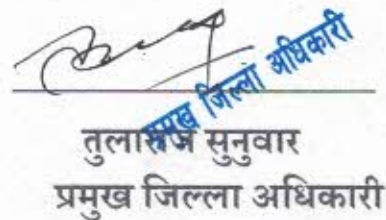 प्रमुख जिल्ला अधिकारी
तुलाराज सुनुवार
प्रमुख जिल्ला अधिकारी